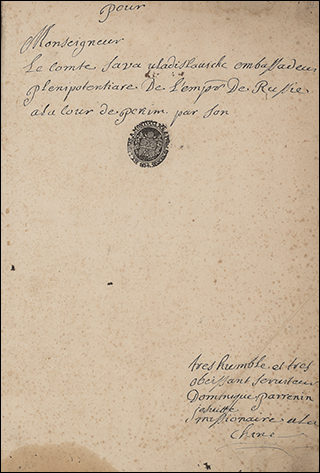 pour
Monseigneur
Le comte Sava uladislausche embassadeur
plenipotentiare De L'empr De Russie
a la cour de pekim par son
tres humble et tres
obeissant serviteur
Dominique parrenin
jesuitte
missionaire a la
chine